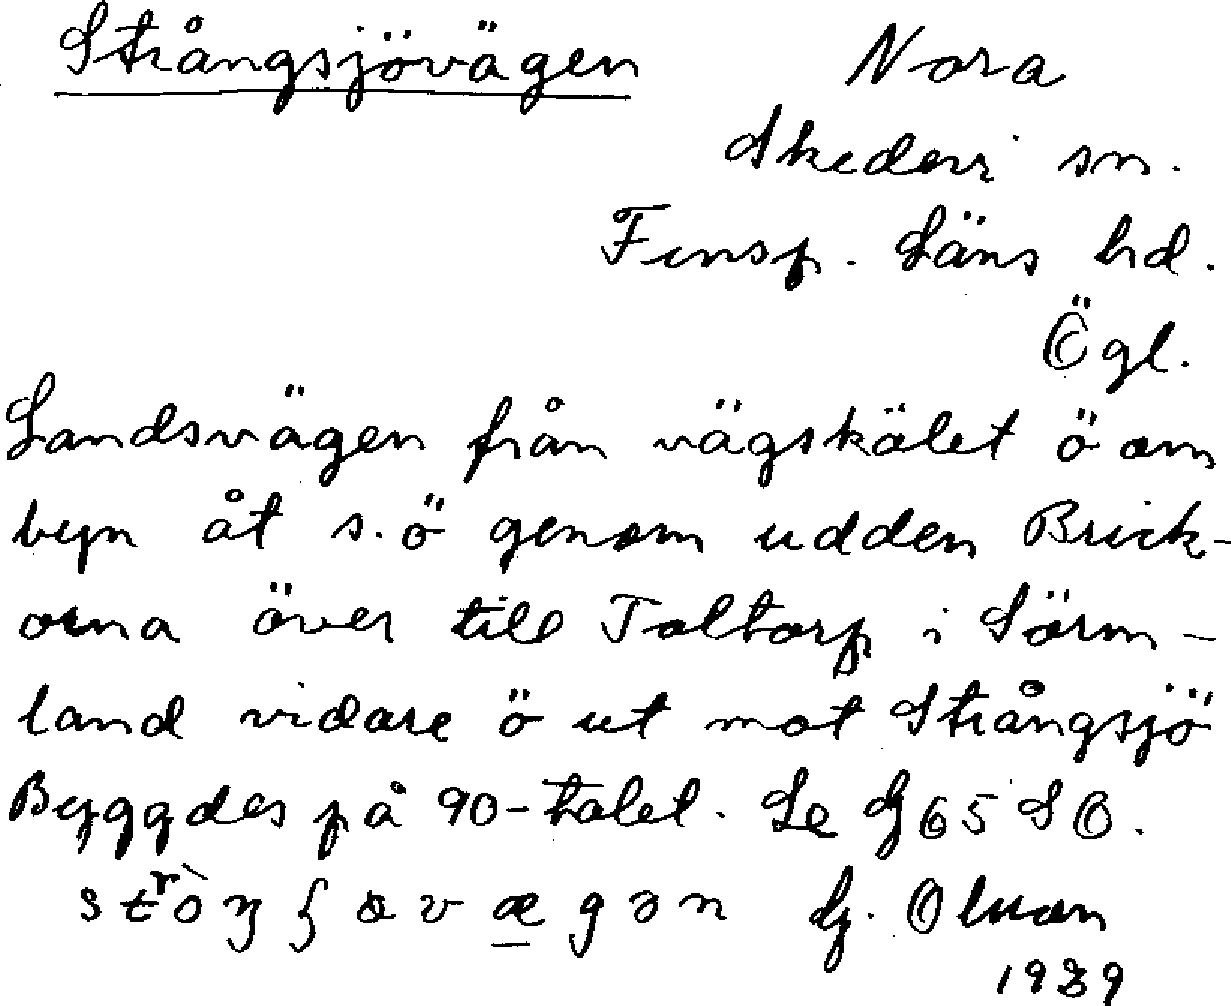 Strångsjövägen Nora
Skedevi sn.
Finsp. Läns hd.
Ögl.
Landsvägen från vägskälet ö om
byn åt s.ö genom udden Brick-
orna över till Taltorp i Sörm-
land vidare ö ut mot Strångsjö
Byggdes på 90-talet. Se Gj 65 SO.
G. Olsson
1939